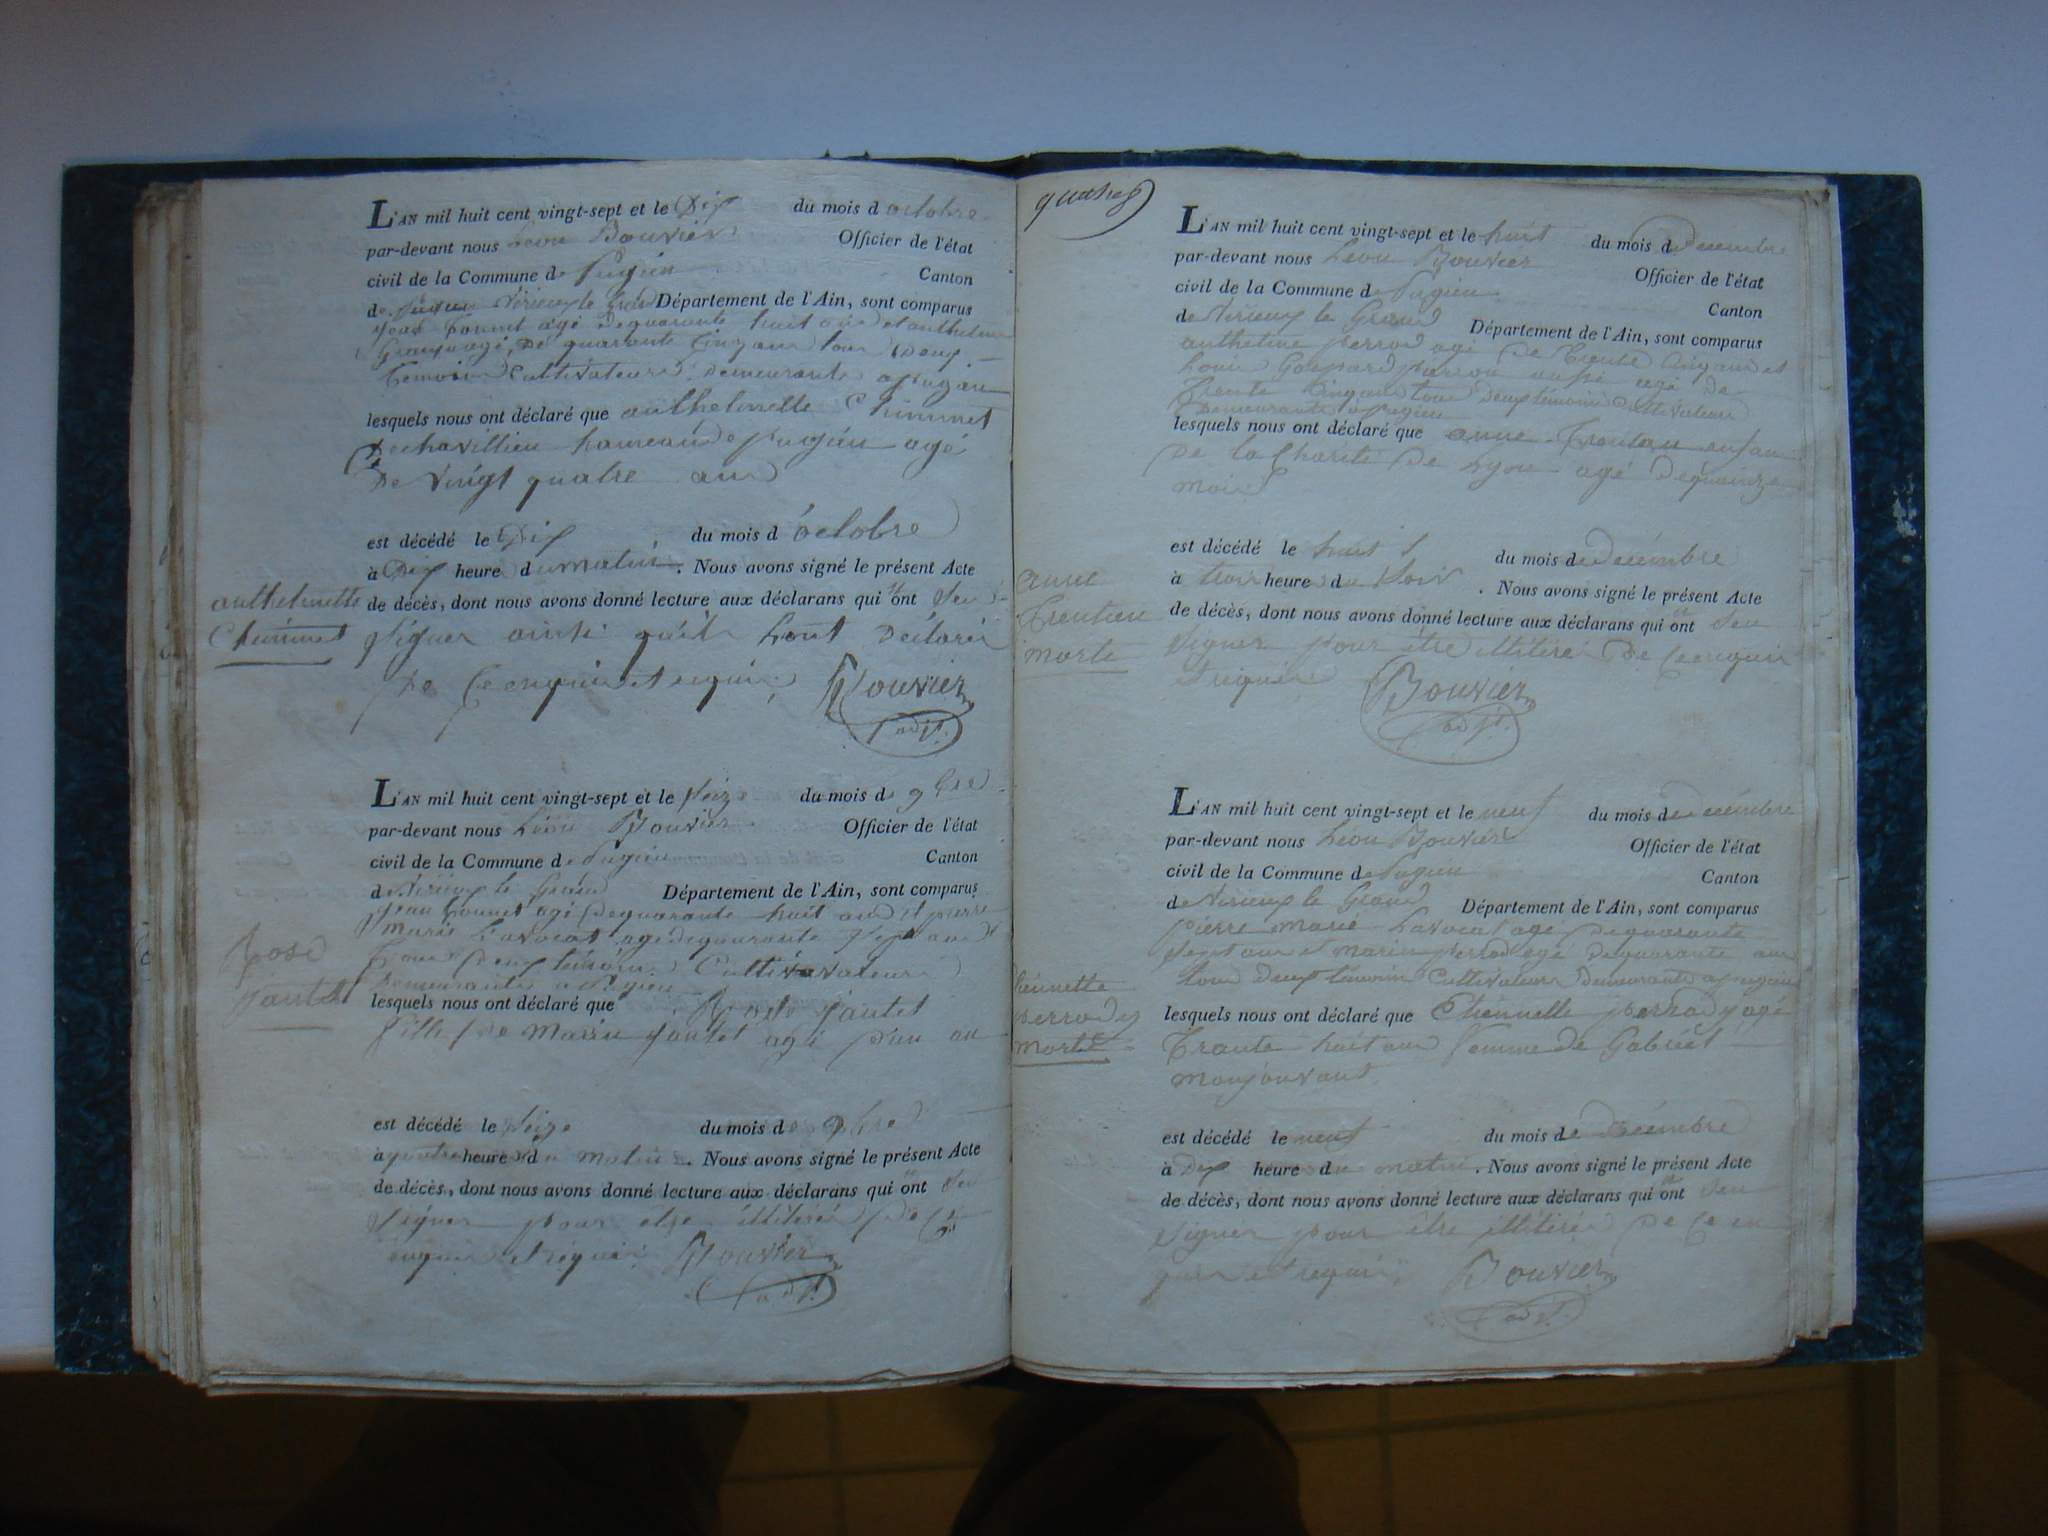 L'AN mil huit cent vingt-sept et le Dix du mois d octobre
par-devant nous Léon Bouvier Officier de l'état
civil de la Commune de Pugieu Canton
de Virieux le Grand Département de l'Ain, sont comparus
agé de quarante huit ans et anthelme
agé, De quarante Cinq ans tous Deux
temoin Cultivateurs Demeurants a pugieu
lesquels nous ont déclaré que anthelmette Chimmet
De chavillieu hameau de pugieu agé
De vingt quatre ans
est décédé le Dix du mois d'octobre
à Dix heure du matin. Nous avons signé le présent Acte
anthelmette
Chimmet
de décès, dont nous avons donné lecture aux déclarans qui n'ont Seu
Signer ainsi qu'ils Lont Déclaré
De Ce enquis et requis. Bouvier
adjt.
L'AN mil huit cent vingt-sept et le Seize du mois de 9bre
par-devant nous Léon Bouvier Officier de l'état
civil de la Commune de Pugieu Canton
de Virieux le Grand Département de l'Ain, sont comparus
Jean agé De quarante huit ans et pierre
marie Lavocat agé de quarante Sept ans
tous Deux témoin Cultivavateurs
Demeurants a Pugieu
Rose
Jantet
lesquels nous ont déclaré que Rose Jantet
fille de Marin Jantet agé D'un an
est décédé le Seize du mois de 9bre
à quatre heure du matin. Nous avons signé le présent Acte
de décès, dont nous avons donné lecture aux déclarans qui n'ont Seu
Signer pour etre illitéré De Ce
enquis et requis. Bouvier
adjt.
quatre
L'AN mil huit cent vingt-sept et le huit du mois de Decembre
par-devant nous Léon Bouvier Officier de l'état
civil de la Commune de Pugieu Canton
de Virieux le Grand Département de l'Ain, sont comparus
anthelme perrod agé De trente Cinq ans et
Louis Gaspard aussi agé de
trente Cinq ans tous Deux temoin Cultivateurs
Demeurants a pugieu
lesquels nous ont déclaré que anne Trentieu enfan
De la Charité De Lyon agé De quinze
mois
est décédé le huit du mois de Decémbre
à trois heure du Soir. Nous avons signé le présent Acte
anne
Trentieu
morte
de décès, dont nous avons donné lecture aux déclarans qui n'ont Seu
Signer pour être illitéré De Ce enquis
et requis Bouvier
adjt.
L'AN mil huit cent vingt-sept et le neuf du mois de Decémbre
par-devant nous Léon Bouvier Officier de l'état
civil de la Commune de Pugieu Canton
de Virieux le Grand Département de l'Ain, sont comparus
pierre marie Lavocat agé De quarante
Sept ans et marin perrod agé De quarante ans
tous Deux temoin Cultivateurs Demeurants a pugieu
perrody
morte
lesquels nous ont déclaré que Thiennette perrody agé
Trante huit ans femme de Gabriel
monjouvant
est décédé le neuf du mois de Decémbre
à Dix heure du matin. Nous avons signé le présent Acte
de décès, dont nous avons donné lecture aux déclarans qui n'ont Seu
Signer pour être illitéré De Ce en
quis et requis. Bouvier
adjt.